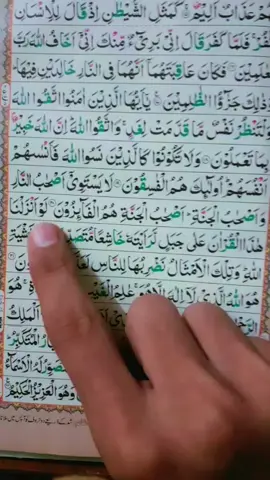 هُمْ عَذَابٌ اَلِيْمٌ كَمَثَلِ الشَّيْطٰنِ اِذْ قَالَ لِلْاِنْسَانِ
فُرْ فَلَمَّا كَفَرَ قَالَ اِنِّىْ بَرِىْٓءٌ مِّنْكَ اِنِّىْٓ اَخَافُ اللّٰهَ رَبَّ
عٰلَمِيْنَ فَكَانَ عَاقِبَتَهُمَآ اَنَّهُمَا فِى النَّارِ خَالِدَيْنِ فِيْهَا
ذٰلِكَ جَزٰٓؤُا الظّٰلِمِيْنَ يٰٓاَيُّهَا الَّذِيْنَ اٰمَنُوا اتَّقُوا اللّٰهَ
لْتَنْظُرْ نَفْسٌ مَّا قَدَّمَتْ لِغَدٍ وَاتَّقُوا اللّٰهَ اِنَّ اللّٰهَ خَبِيْرٌ
بِمَا تَعْمَلُوْنَ وَلَا تَكُوْنُوْا كَالَّذِيْنَ نَسُوا اللّٰهَ فَاَنْسٰهُمْ
اَنْفُسَهُمْ اُولٰٓئِكَ هُمُ الْفٰسِقُوْنَ لَا يَسْتَوِىْٓ اَصْحٰبُ النَّارِ
وَاَصْحٰبُ الْجَنَّةِ اَصْحٰبُ الْجَنَّةِ هُمُ الْفَآئِزُوْنَ لَوْ اَنْزَلْنَا
هٰذَا الْقُرْاٰنَ عَلٰى جَبَلٍ لَّرَاَيْتَهٗ خَاشِعًا
اللّٰهِ وَتِلْكَ الْاَمْثَالُ نَضْرِبُهَا لِلنَّاسِ لَعَلَّهُمْ
هُوَ اللّٰهُ الَّذِىْ لَآ اِلٰهَ اِلَّا هُوَ عٰلِمُ الْغَيْبِ هُوَ
اَلْمَلِكُ
الْمُتَكَبِّرُ
الْاَسْمَآءُ
وَهُوَ الْعَزِيْزُ الْحَكِيْمُ